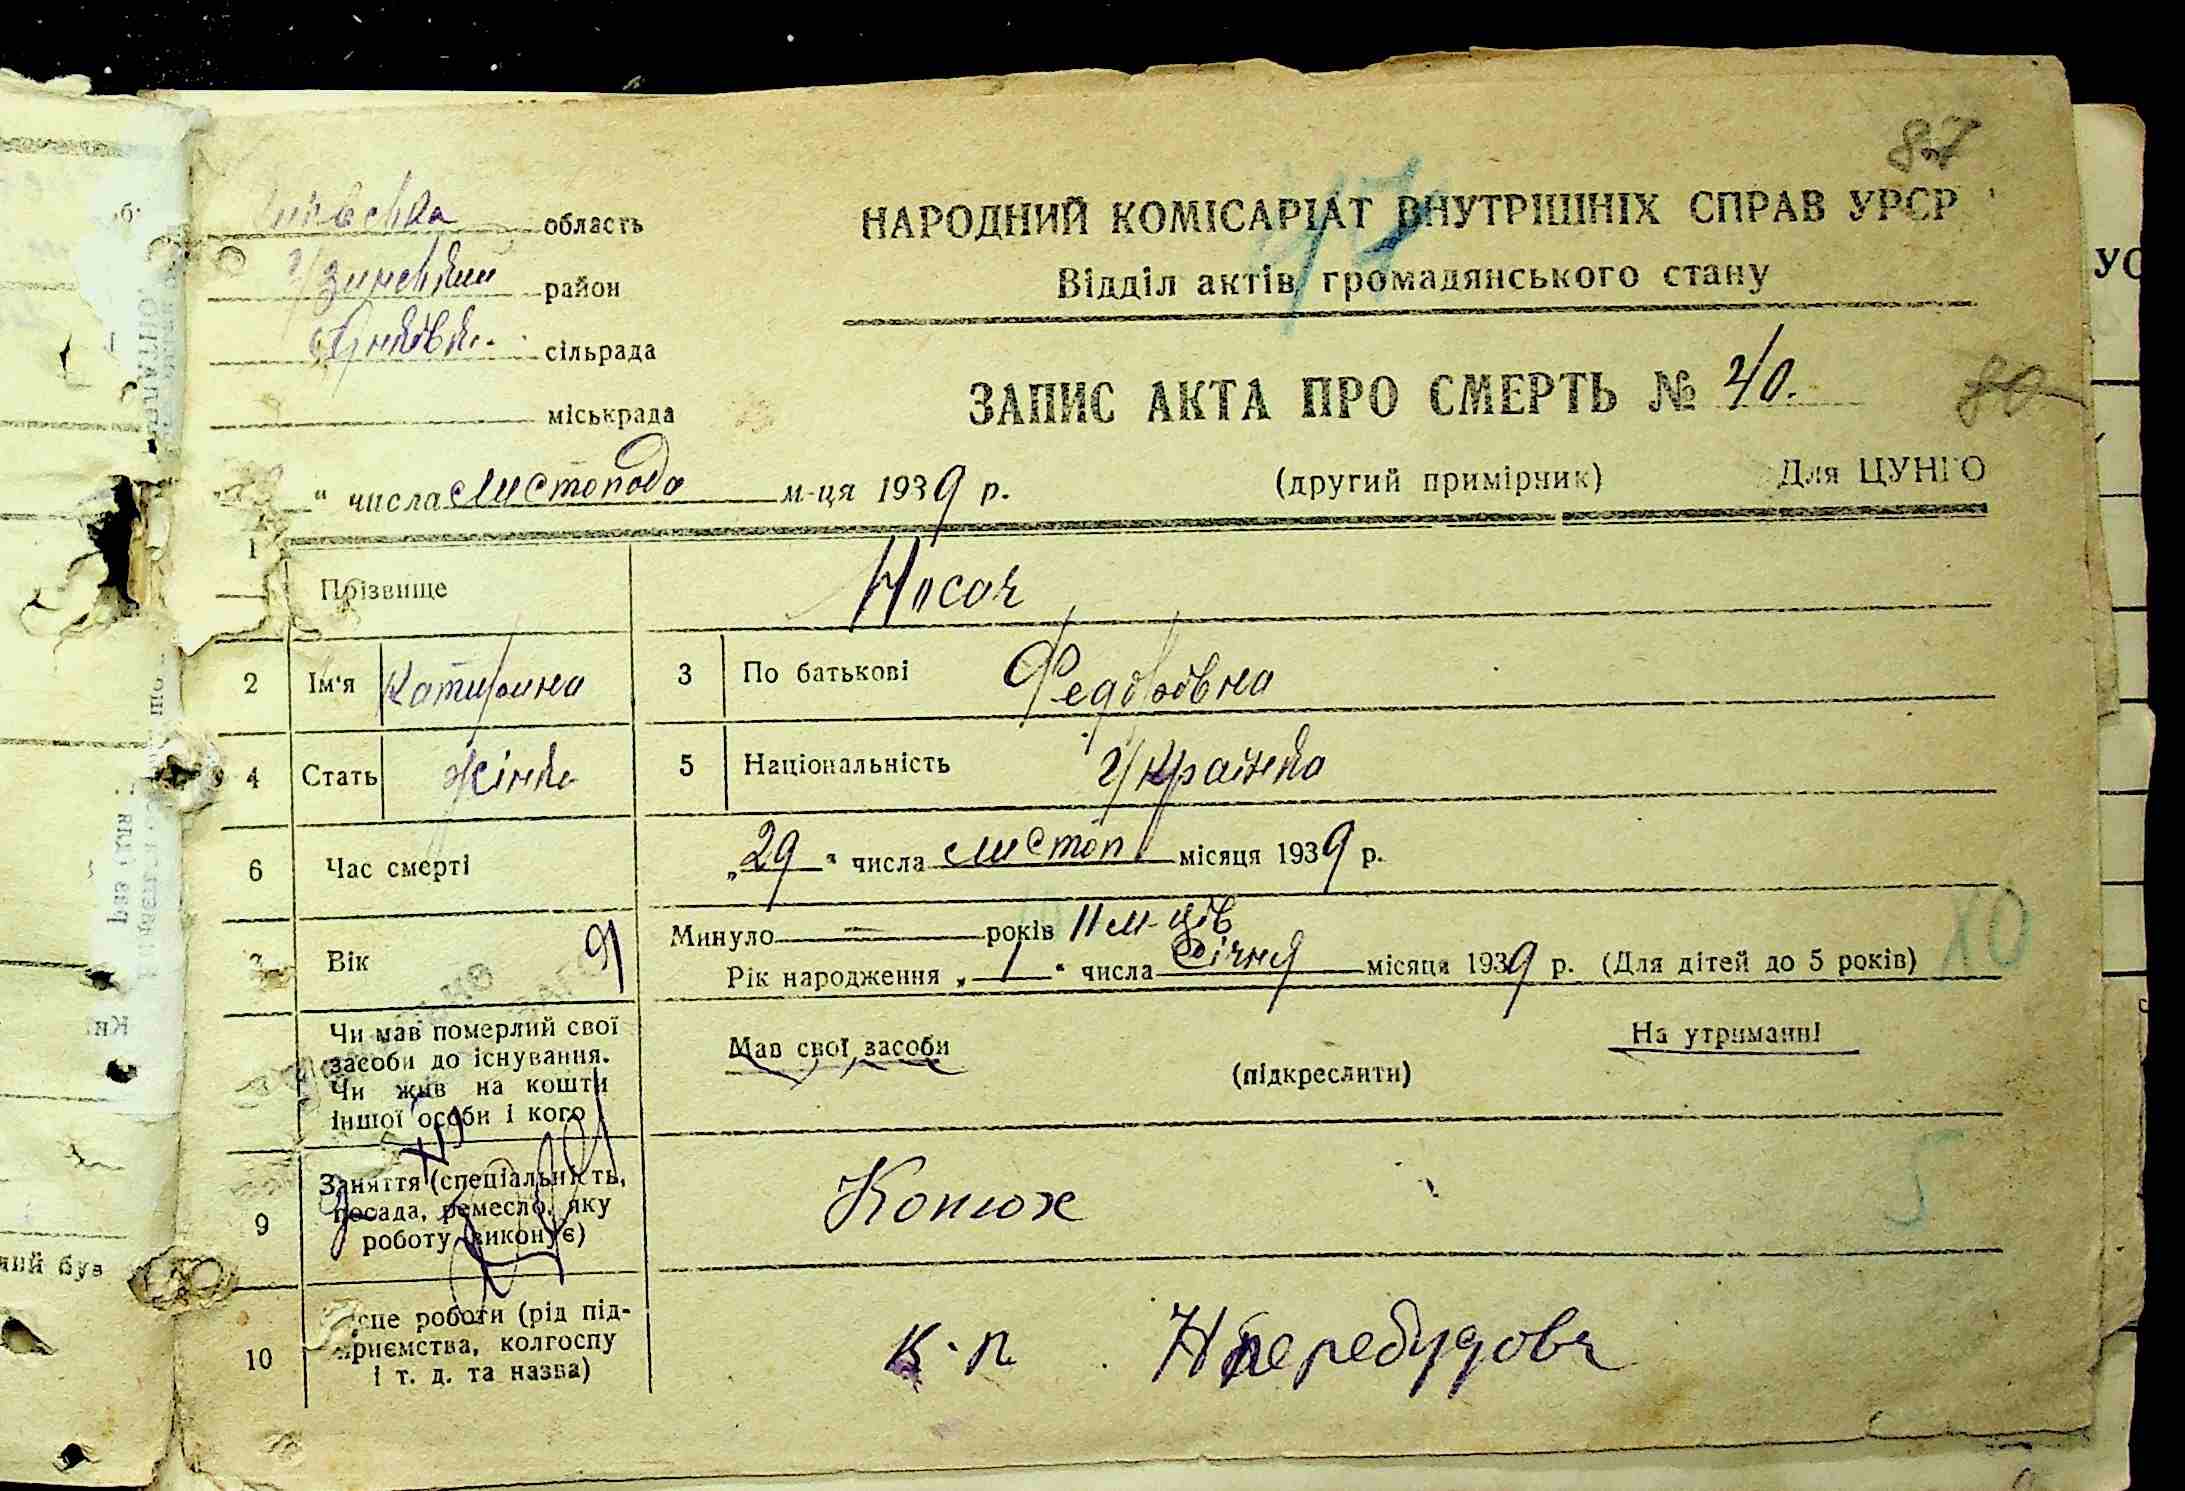 87
область
Узинський район
сільрада
міськрада
НАРОДНИЙ КОМІСАРІАТ ВНУТРІШНІХ СПРАВ УРСР
Відділ актів громадянського стану
ЗАПИС АКТА ПРО СМЕРТЬ № 40.
80
" числа листопада м-ця 1939 р.
(другий примірник) Для ЦУНГО
1 Прізвище Носач
2 Ім'я Катирина 3 По батькові Федорівна
4 Стать жінка 5 Національність Українка
6 Час смерті „29" числа листоп місяця 1939 р.
7 Вік Минуло — років 11 м-ців
Рік народження „1" числа Січня місяця 1939 р. (Для дітей до 5 років)
10
Чи мав померлий свої
засоби до існування.
Чи жив на кошти
іншої особи і кого
Мав свої засоби
(підкреслити)
На утриманні
5
9 Заняття (спеціальність,
посада, ремесло, яку
роботу виконує)
Конюх
10 сце роботи (рід під-
приємства, колгоспу
і т. д. та назва)
к-п
ний був